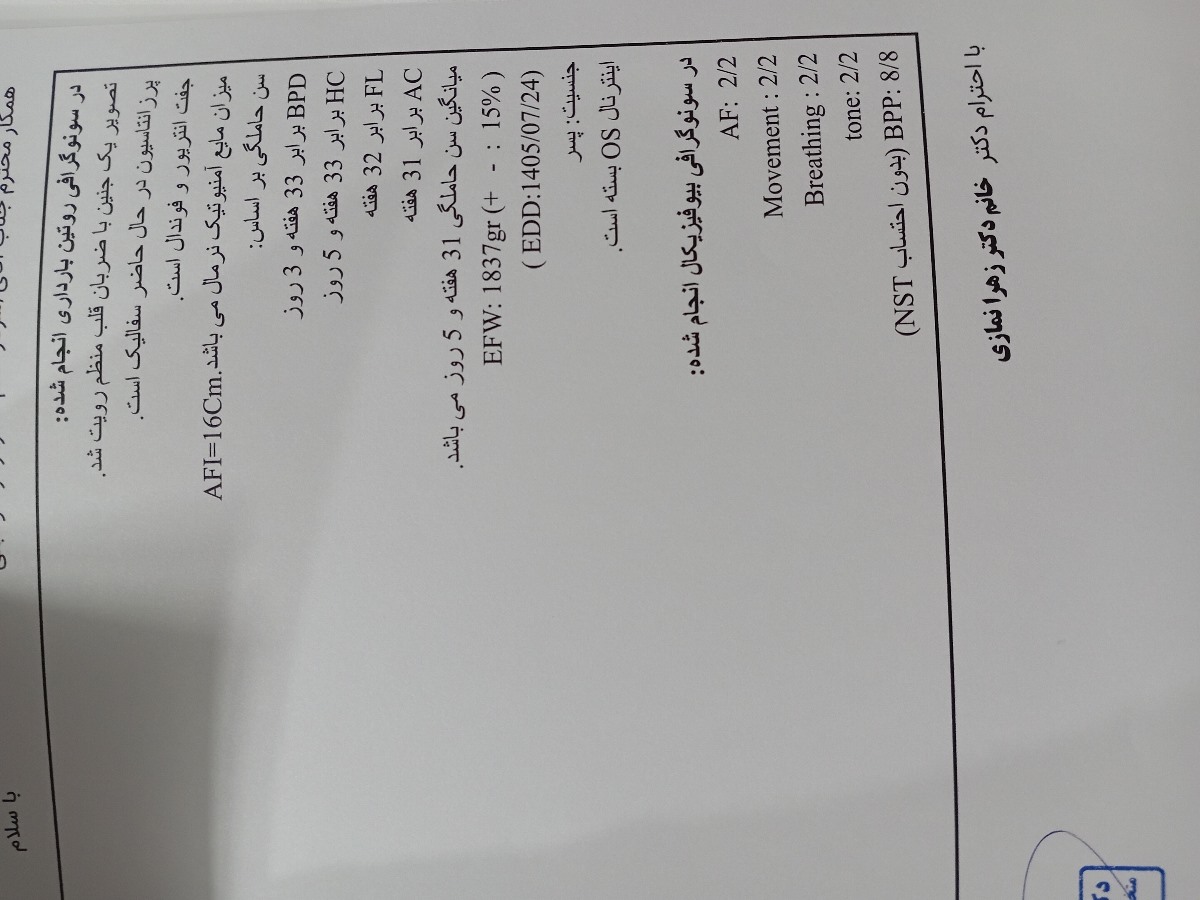 با سلام
در سونوگرافی روتین بارداری انجام شده:
تصویر یک جنین با ضربان قلب منظم رویت شد.
پرزانتاسیون در حال حاضر سفالیک است.
جفت انتریور و فوندال است.
میزان مایع آمنیوتیک نرمال می باشد.AFI=16Cm
سن حاملگی بر اساس:
BPD برابر 33 هفته و 3 روز
HC برابر 33 هفته و 5 روز
FL برابر 32 هفته
AC برابر 31 هفته
میانگین سن حاملگی 31 هفته و 5 روز می باشد.
EFW: 1837gr (+ - : 15% )
( EDD:1405/07/24)
جنسیت: پسر
اینترنال OS بسته است.
در سونوگرافی بیوفیزیکال انجام شده:
AF: 2/2
Movement : 2/2
Breathing : 2/2
tone: 2/2
BPP: 8/8 (بدون احتساب NST)
با احترام دکتر خانم دکتر زهرا نمازی